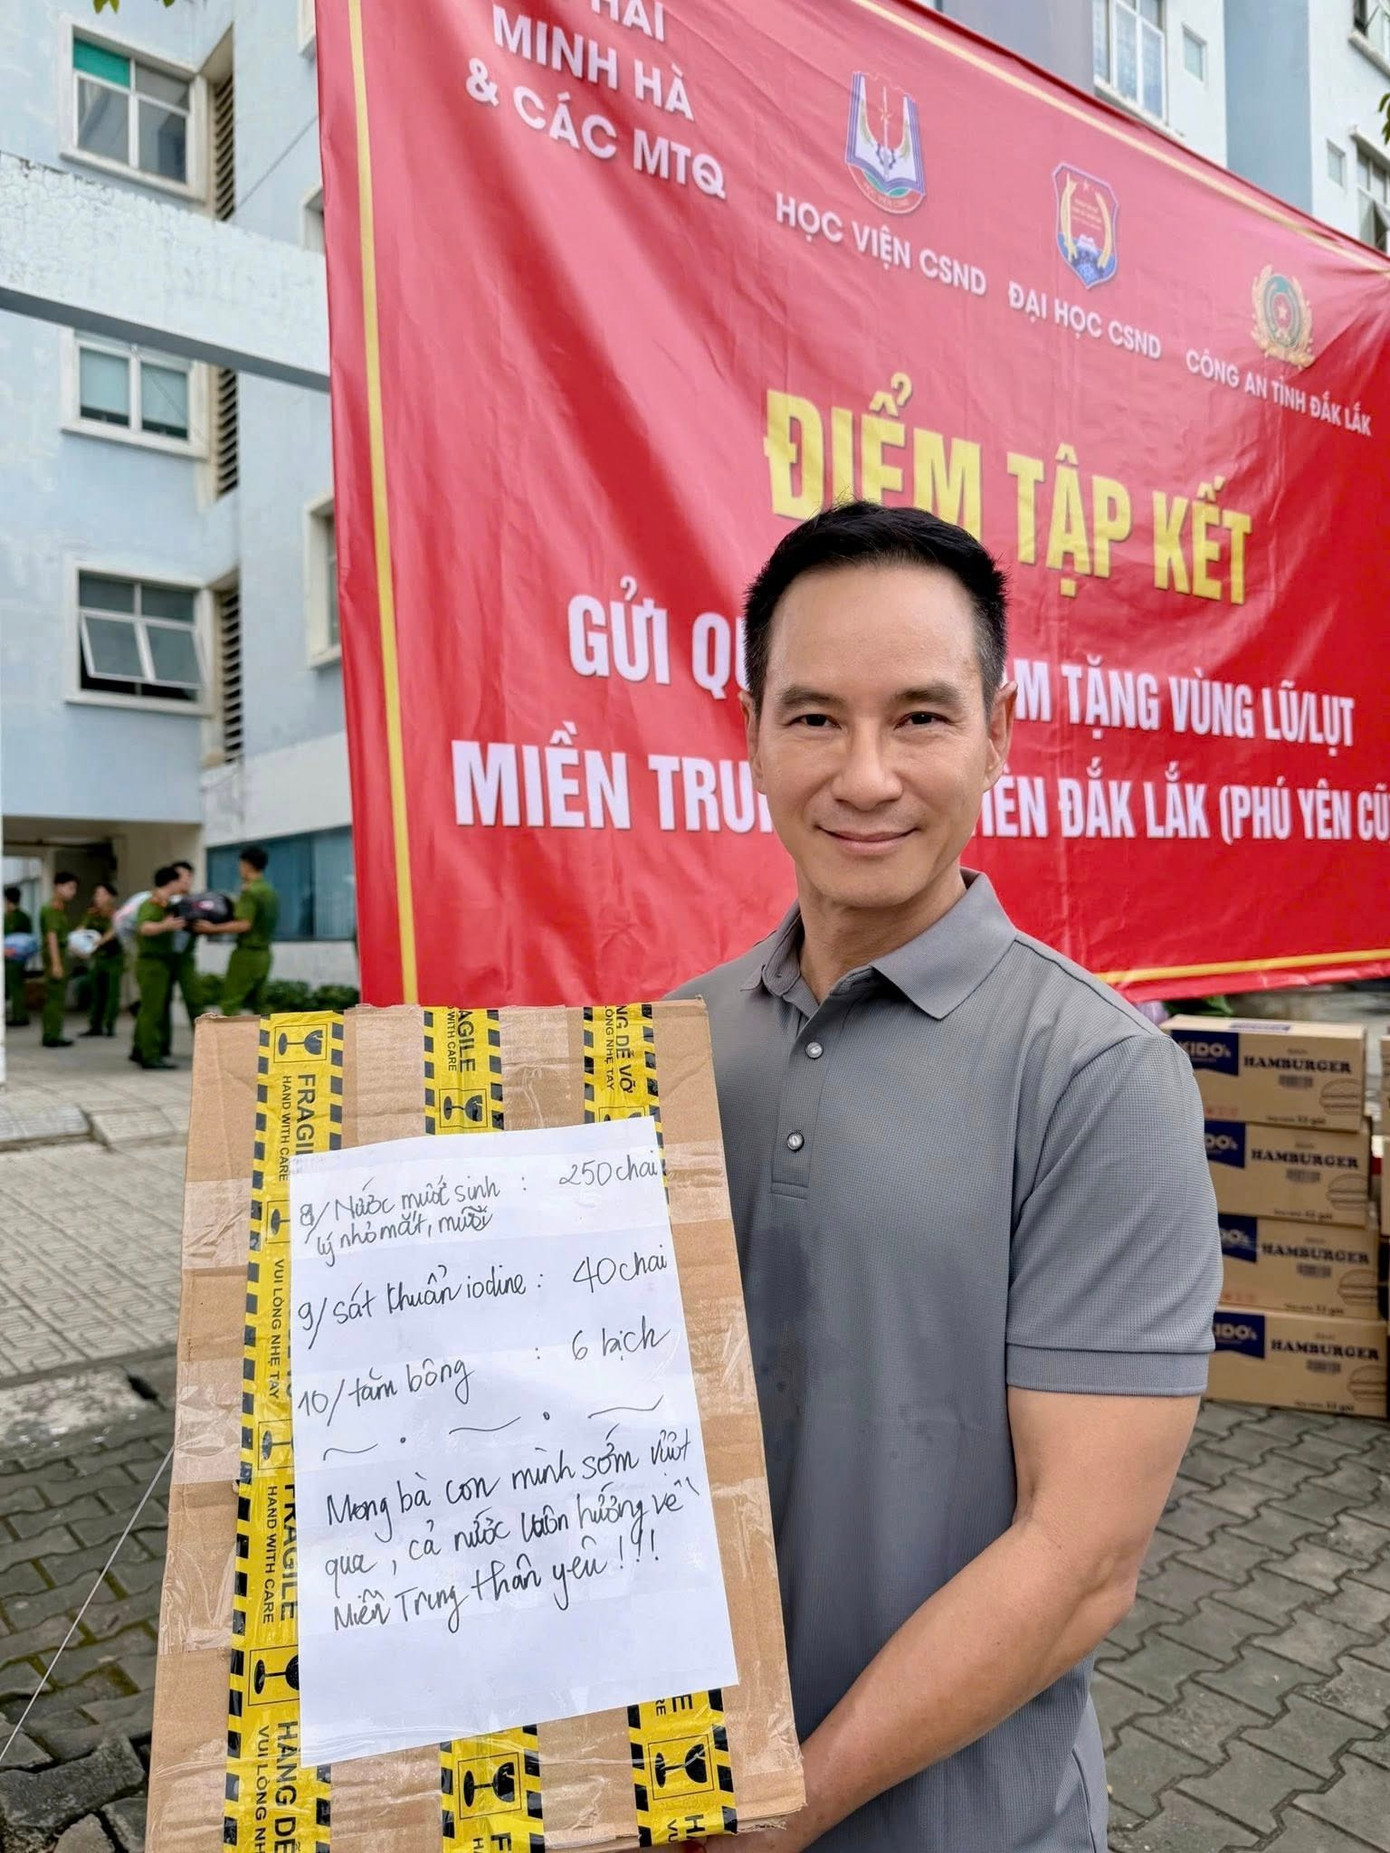 HẢI
MINH HÀ
& CÁC MTQ
HỌC VIỆN CSND
ĐẠI HỌC CSND
CÔNG AN TỈNH ĐẮK LẮK
ĐIỂM TẬP KẾT
GỬI QU M TẶNG VÙNG LŨ/LỤT
MIỀN TRU IÊN ĐẮK LẮK (PHÚ YÊN CŨ
FRAGILE
HAND WITH CARE
VUI LÒNG NHẸ TAY
FRAGILE
HAND WITH CARE
HÀNG DỄ
VUI LÒNG NHẸ
AGILE
WITH CARE
NG DỄ VỠ
LÒNG NHẸ TAY
8/ Nước muối sinh : 250 chai
lý nhỏ mắt, mũi
9/ Sát khuẩn iodine : 40 chai
10/ tăm bông : 6 bịch
Mong bà con mình sớm vượt
qua, cả nước luôn hướng về
Miền Trung thân yêu !!!
KIDO's HAMBURGER
HAMBURGER
HAMBURGER
IDO's HAMBURGER